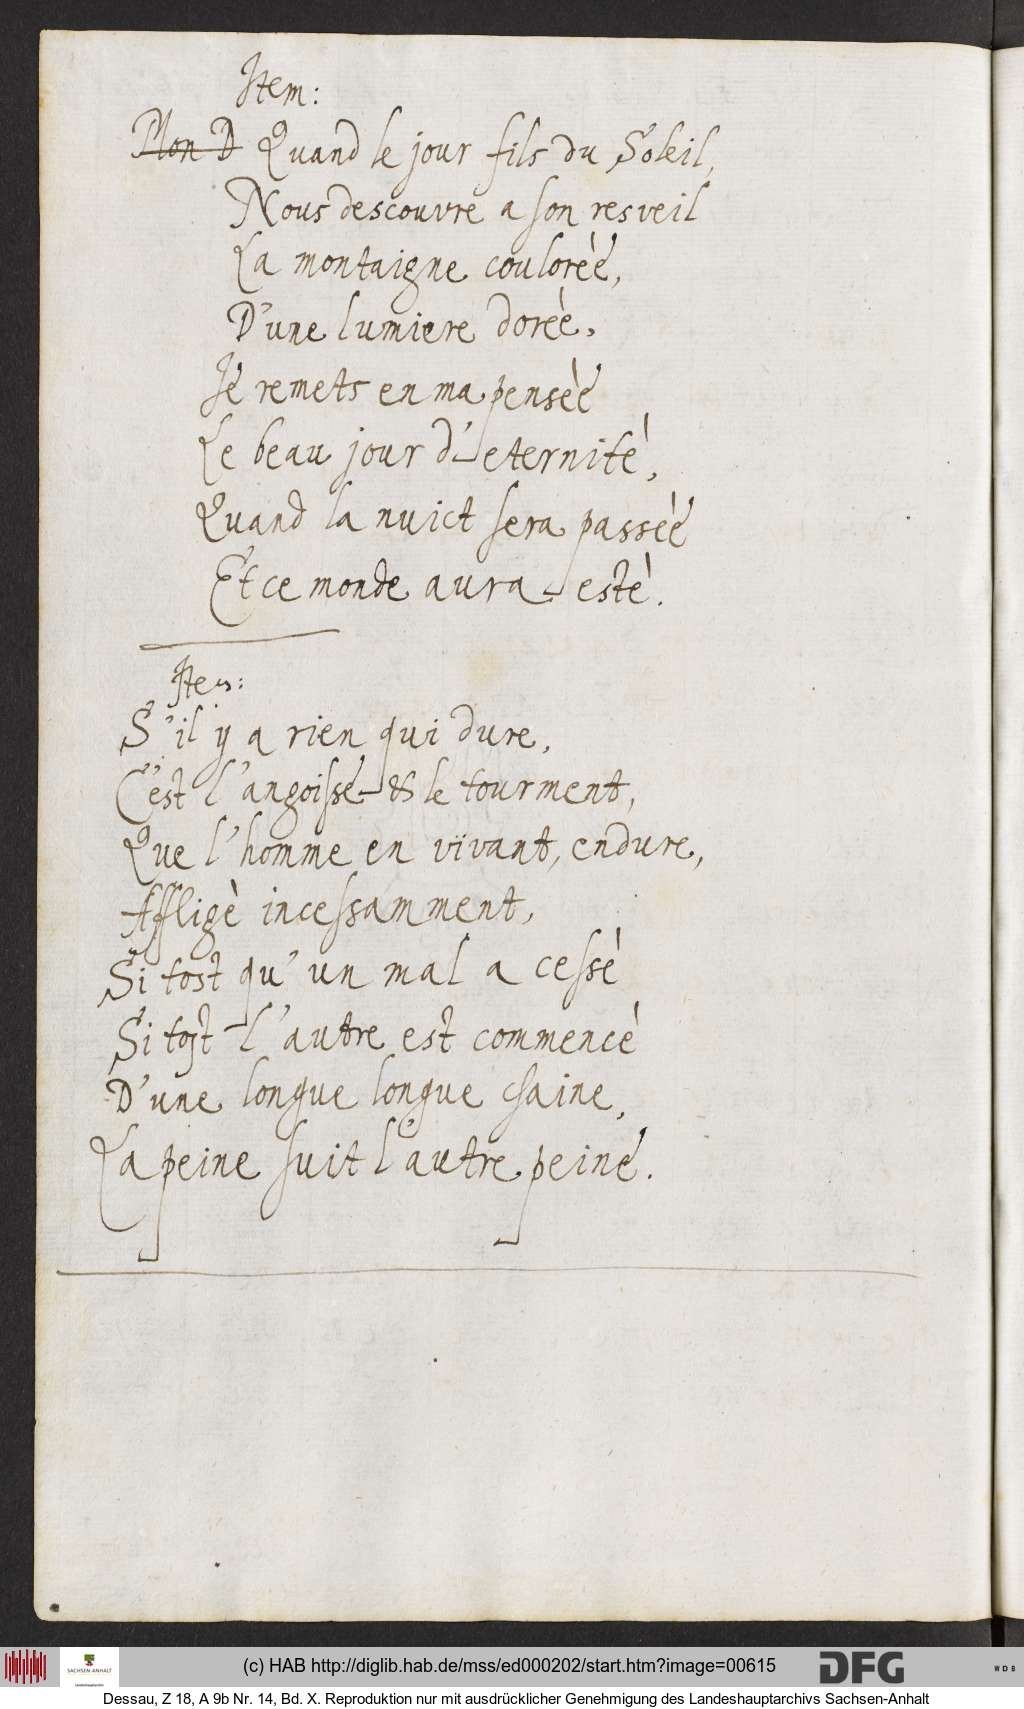 Item:
Mon D Quand le jour fils du Soleil,
Nous descouvre a son resveil
La montaigne couloréé,
D'une lumiere doréé,
Je remets en ma penséé
Le beau jour d'eternité,
Quand la nuict sera passéé
Et ce monde aura esté.
Item:
S'il y a rien qui dure,
C'est l'angoisse & le tourment,
Que l'homme en vivant, endure,
Affligè incessamment,
Si tost qu'un mal a cessè
Si tost l'autre est commencè
D'une longue longue chaine,
La peine suit l'autre peine.
(c) HAB http://diglib.hab.de/mss/ed000202/start.htm?image=00615
SACHSEN-ANHALT
Landeshauptarchiv
DFG
WDB
Dessau, Z 18, A 9b Nr. 14, Bd. X. Reproduktion nur mit ausdrücklicher Genehmigung des Landeshauptarchivs Sachsen-Anhalt